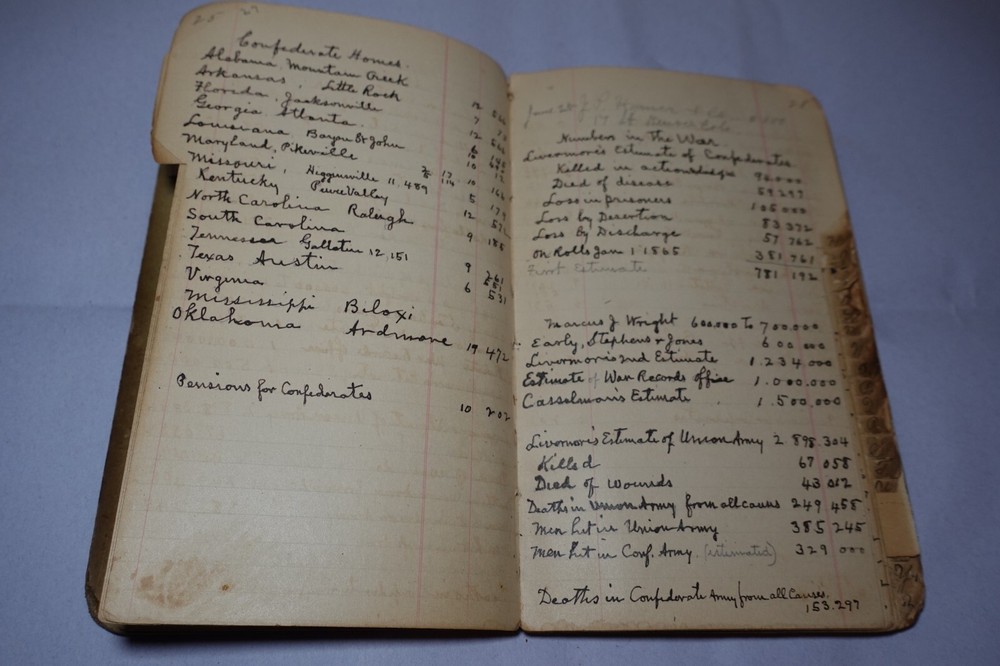 25
Confederate Homes.
Alabama, Mountain Creek
Arkansas, Little Rock 12
Florida, Jacksonville 7
Georgia, Atlanta. 12
Louisiana Bayou St John
Maryland, Pikeville 10
Missouri, Higginsville 11, 489
Kentucky Pewee Valley 5
North Carolina Raleigh 12
South Carolina 9 185
Tennessee Gallatin 12, 151
Texas Austin 9 261
Virginia 6 531
Mississippi Biloxi
Oklahoma Ardmore 19 472
Pensions for Confederates 10 202
Numbers in The War
Livermore's Estimate of Confederates
Killed in action 94.000
Died of disease 59.297
Loss in prisoners 105 000
Loss by Desertion 83 372
Loss by Discharge 57 762
On Rolls Jan 1 1865 381 761
First Estimate 781 192
Marcus J Wright 600.000 To 700.000
Early, Stephens & Jones 600 000
Livermore's 2nd Estimate 1.234 000
Estimate of War Records Office 1.000.000
Casselman's Estimate 1.500.000
Livermore's Estimate of Union Army 2 898.304
Killed 67 058
Died of wounds 43 012
Deaths in Union Army from all causes 249 458
Men hit in Union Army 385 245
Men hit in Conf. Army (estimated) 329 000
Deaths in Confederate Army from all causes.
153.297